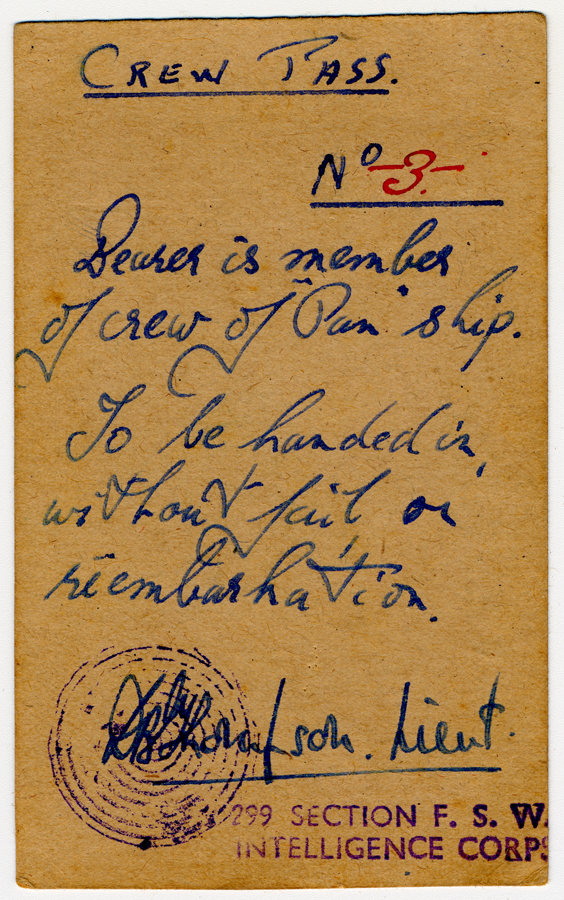 CREW PASS.
Nº -3.-
Bearer is member
of crew of "Pan" ship.
To be handed in,
without fail on
reembarkation.
Thompson. Lieut.
299 SECTION F. S. W.
INTELLIGENCE CORPS